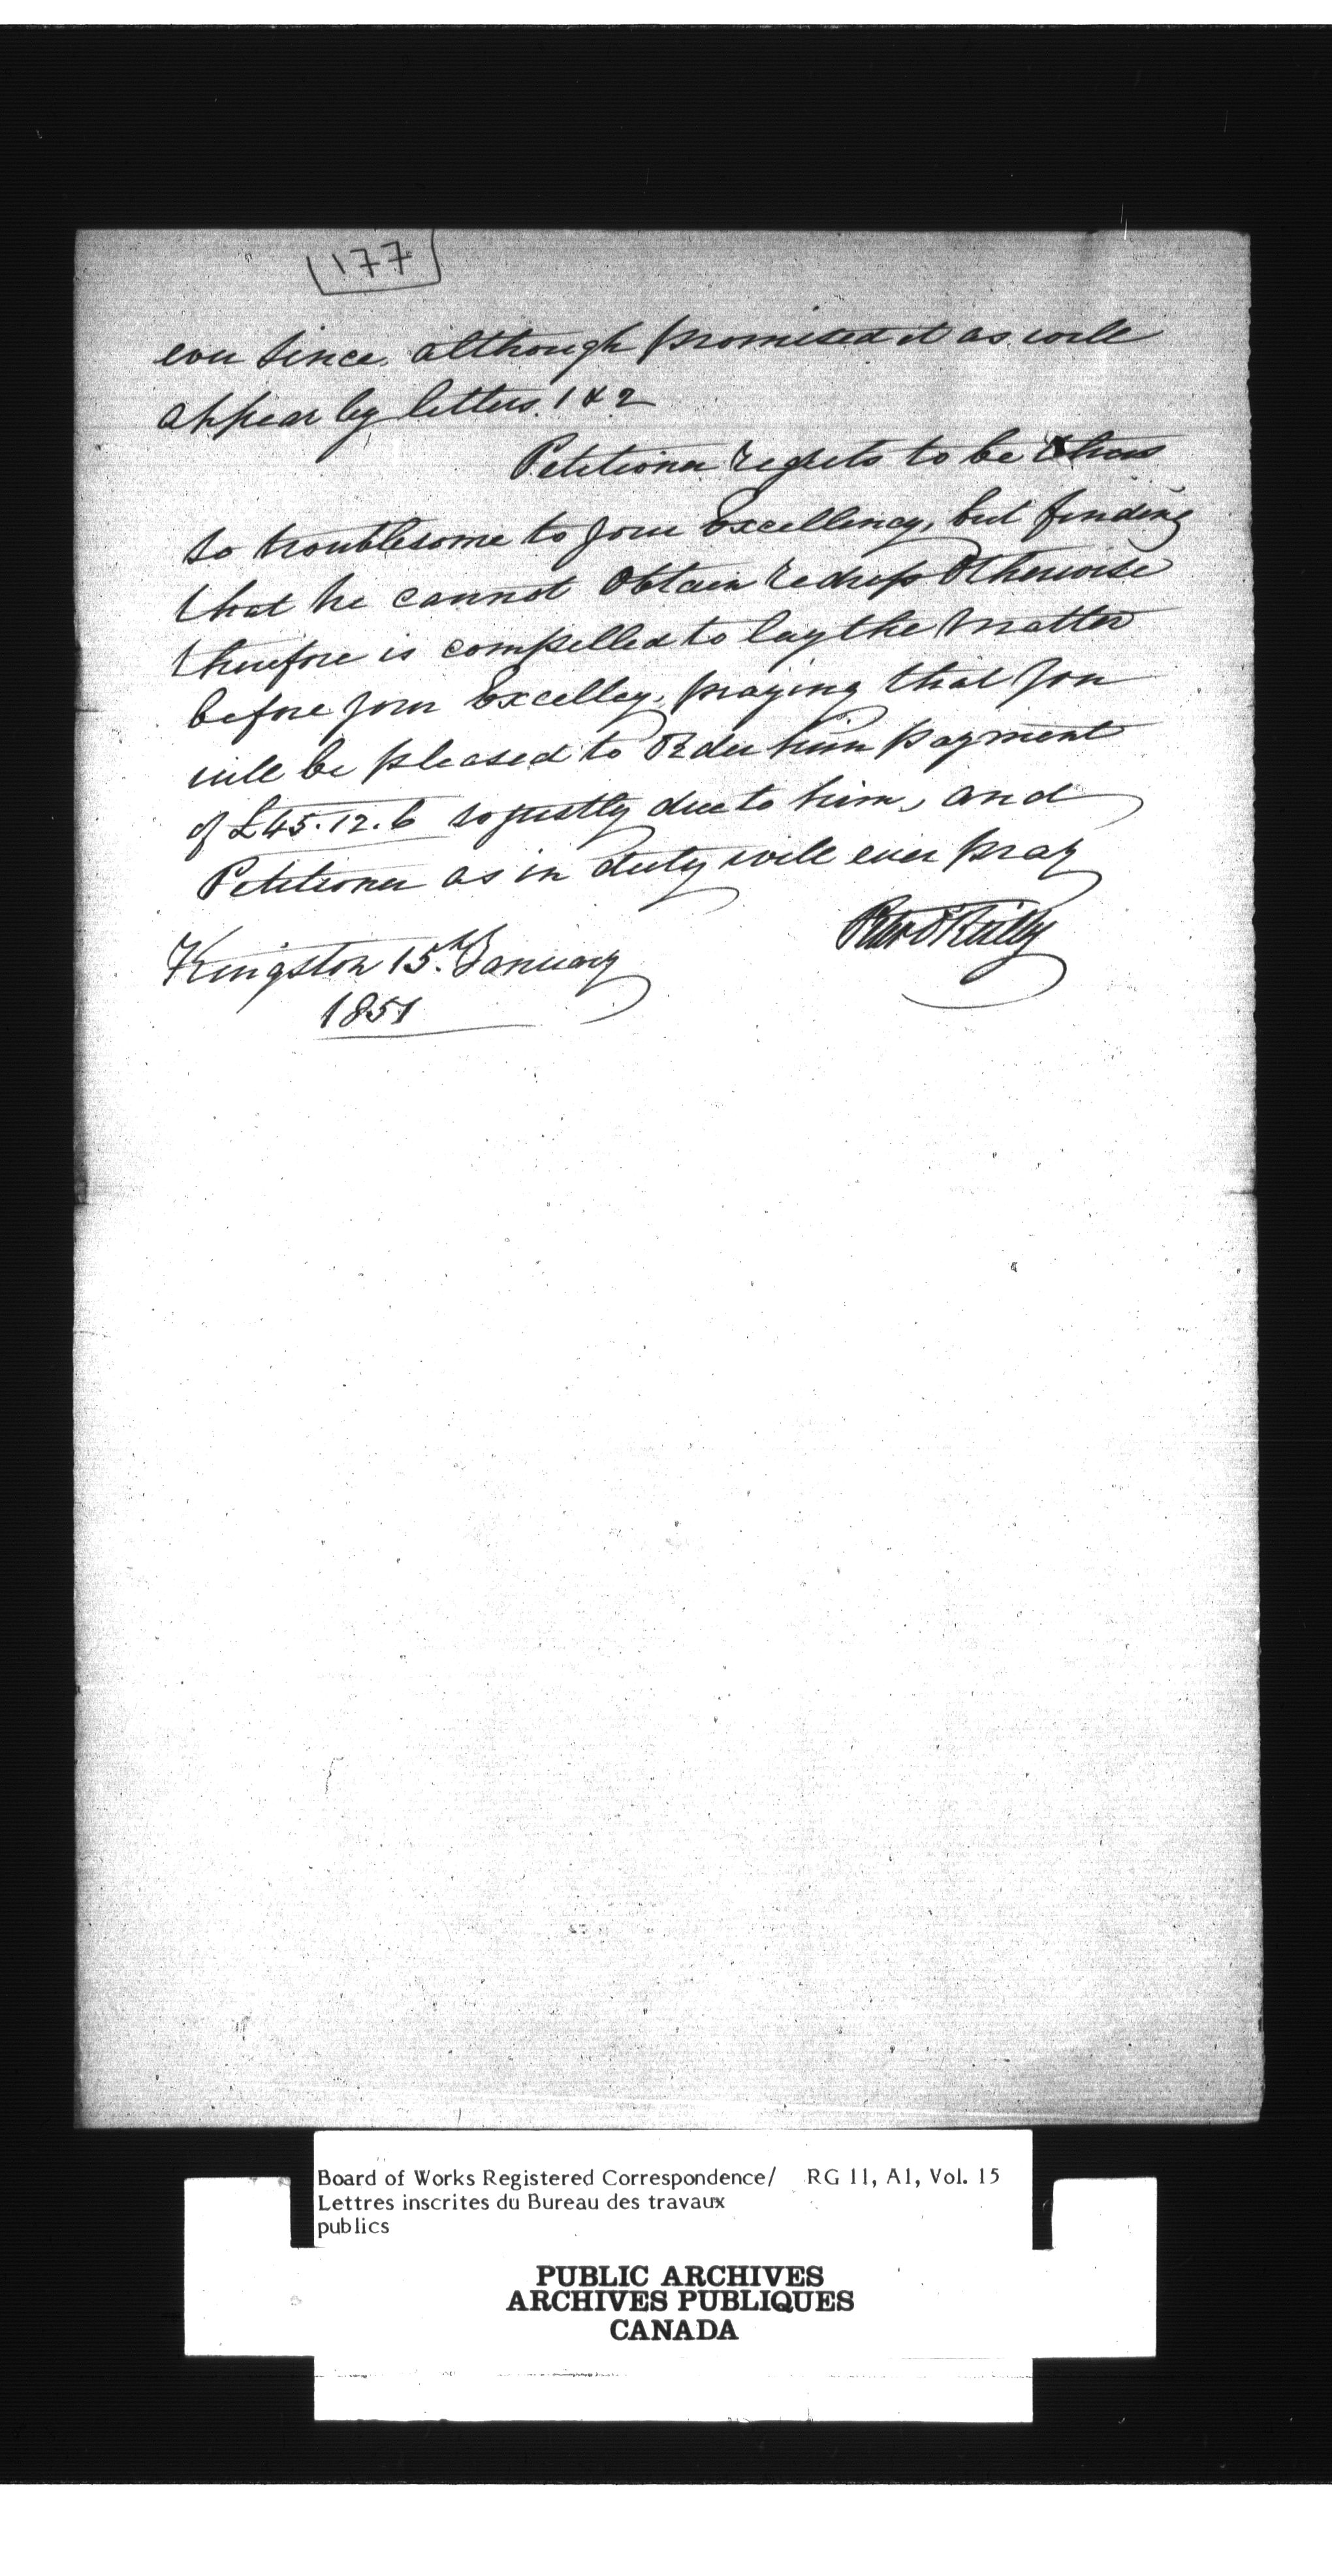 177
ever since, although promised it as will
appear by letters. 1 & 2
Petitioner regrets to be thus
so troublesome to your Excellency, but finding
that he cannot obtain redress otherwise
therefore is compelled to lay the matter
before your Excelley, praying that you
will be pleased to Order him payment
of £45.12.6 so justly due to him, and
Petitioner as in duty will ever pray
Peter O'Reilly
Kingston 15th January
1851
Board of Works Registered Correspondence/ RG 11, A1, Vol. 15
Lettres inscrites du Bureau des travaux
publics
PUBLIC ARCHIVES
ARCHIVES PUBLIQUES
CANADA